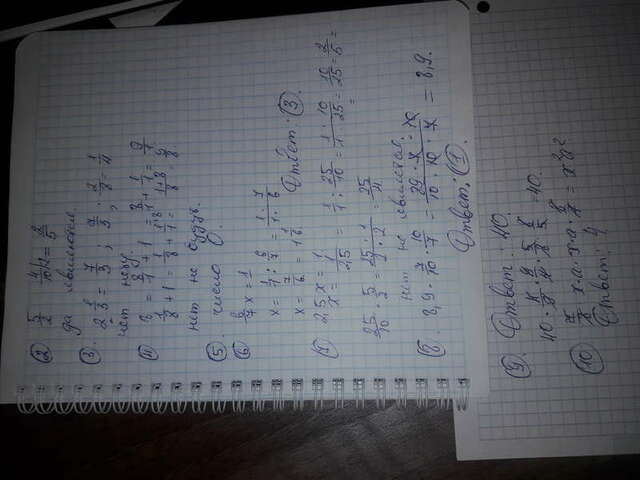 ② 5/2 4/10|2 = 2/5
да являются.
③. 2 1/3 = 7/3 ; 7/3 ; 2/8 = 1/4
нет нету.
④ 8 = 8/1 + 1 = 8/1 + 1/1 = 9/1
1/8 + 1 = 1/8 + 1/1 = 1+8/8 = 9/8.
нет не будув.
⑤. число 0.
⑥ 6/7 x = 1
x = 1/1 : 6/7 = 1 · 7/1 · 6
x = 7/6 = 1 1/6 Ответ: ③.
⑦ 2,5 x = 1
x = 1/2,5 = 1/1 : 25/10 = 1 · 10/1 · 25 = 10/25 = 2/5 =
=
25/10 · 5/2 = 25 · 1/2 · 2 = 25/4
нет не является.
⑧. 8,9 · 7/10 · 10/7 = 89 · 7 · 10/10 · 10 · 7 = 8,9.
Ответ: ①.
⑨. Ответ: 40.
= 40.
⑩ 7/8 x·a·x·a· 8/7 = x²a²
Ответ: 4